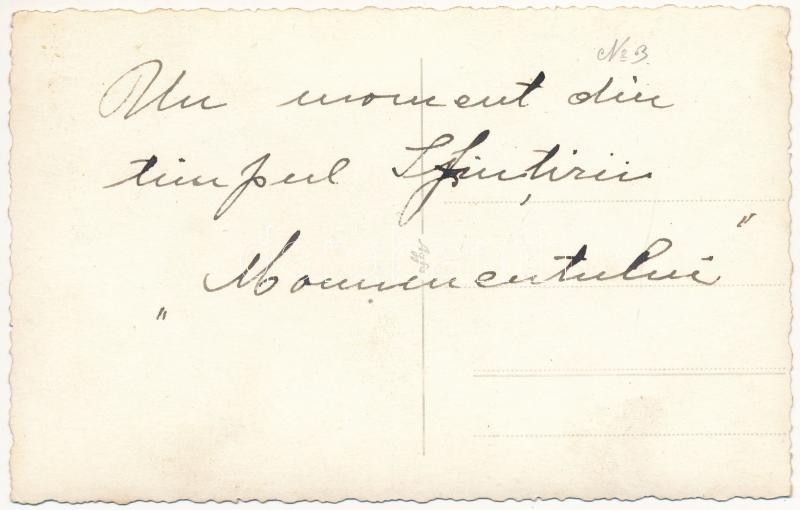 No 3.
Un moment din
timpul Sfințirii
„Monumentului"